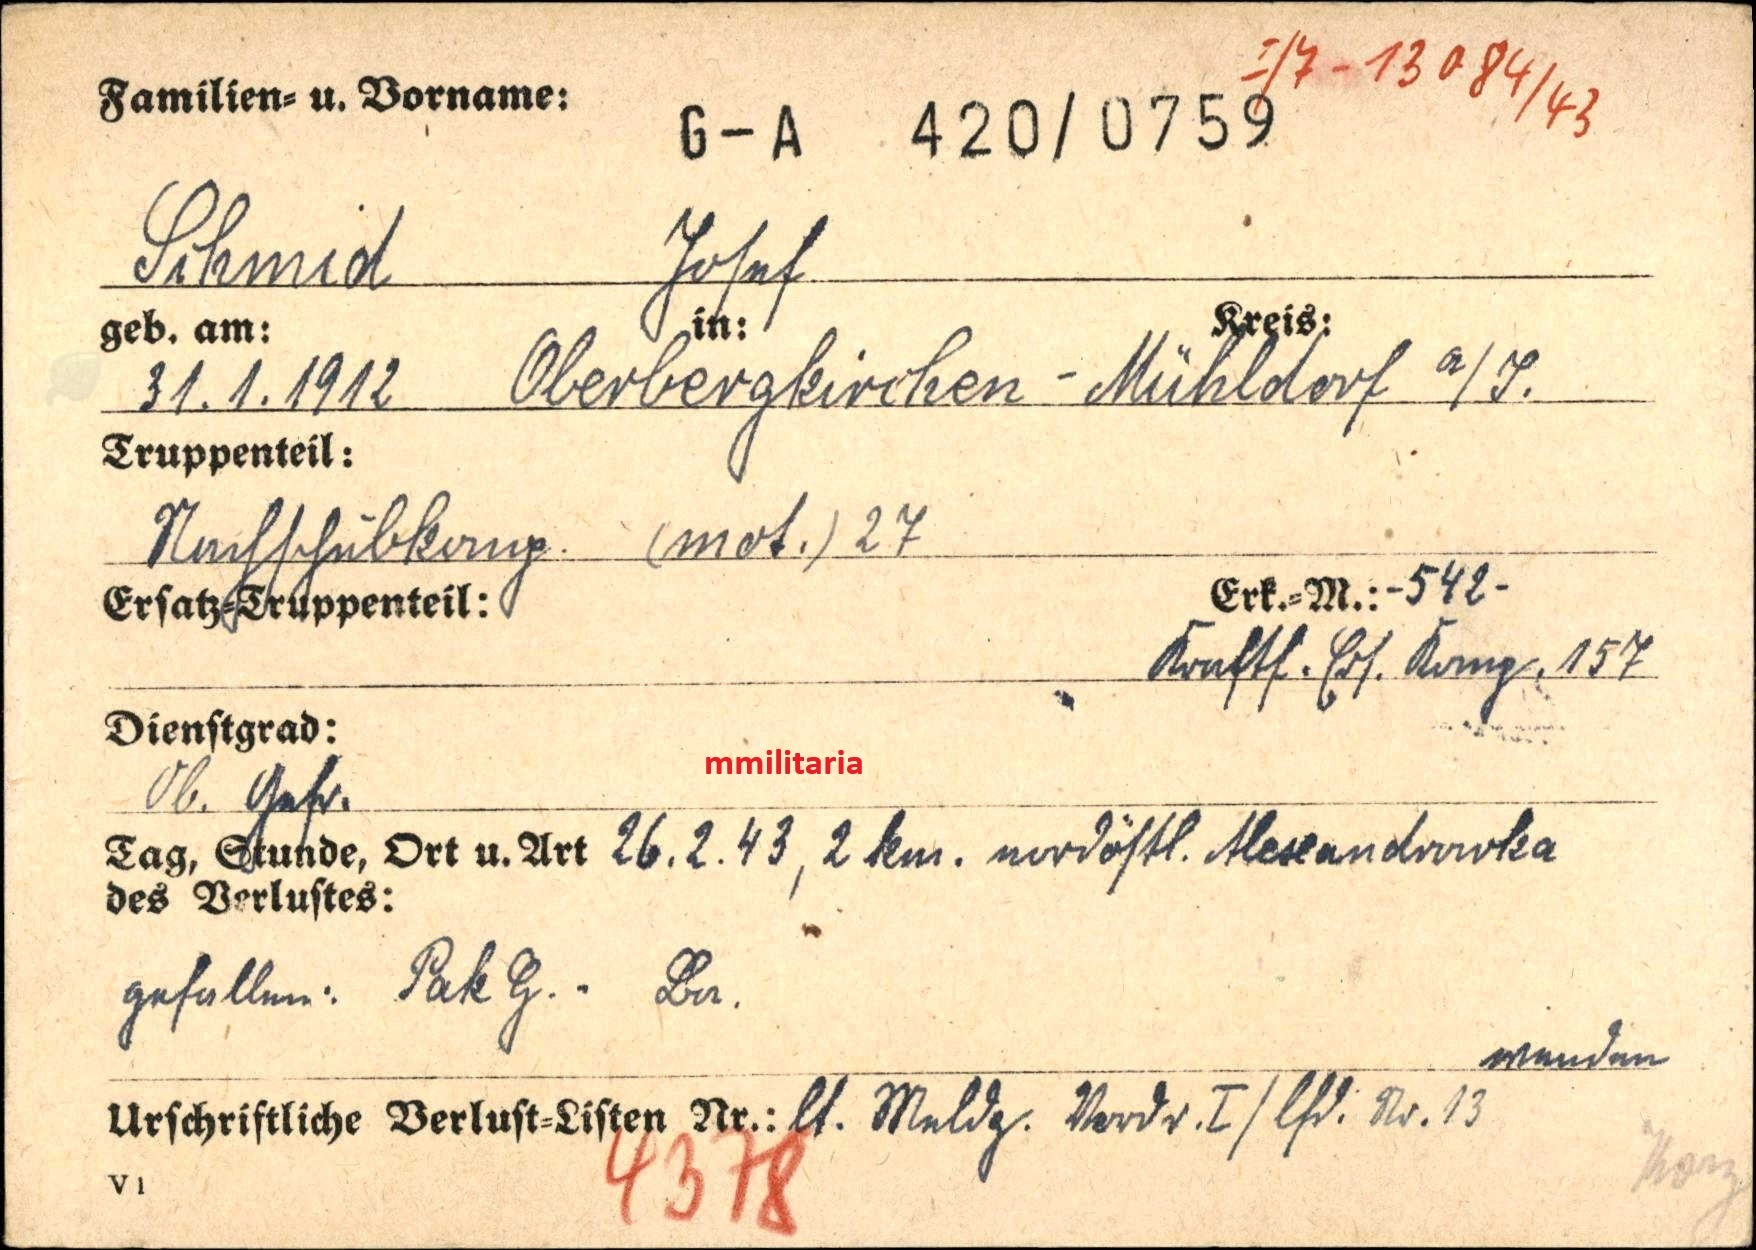 I/7 - 13084/43
Familien- u. Vorname:
G-A 420/0759
Schmid Josef
geb. am: in: Kreis:
31.1.1912 Oberbergkirchen - Mühldorf a/I.
Truppenteil:
Nachschubkomp. (mot.) 27
Ersatz-Truppenteil: Erk.-M.: -542-
Kraftf. Ers. Komp. 157
Dienstgrad:
mmilitaria
Ob. Gefr.
Tag, Stunde, Ort u. Art 26.2.43, 2 km. nordöstl. Alexandrowka
des Verlustes:
gefallen: Pak G. -
wenden
Urschriftliche Verlust-Listen Nr.: lt. Meldg. Vordr. I / lfd. Nr. 13
4378
V 1